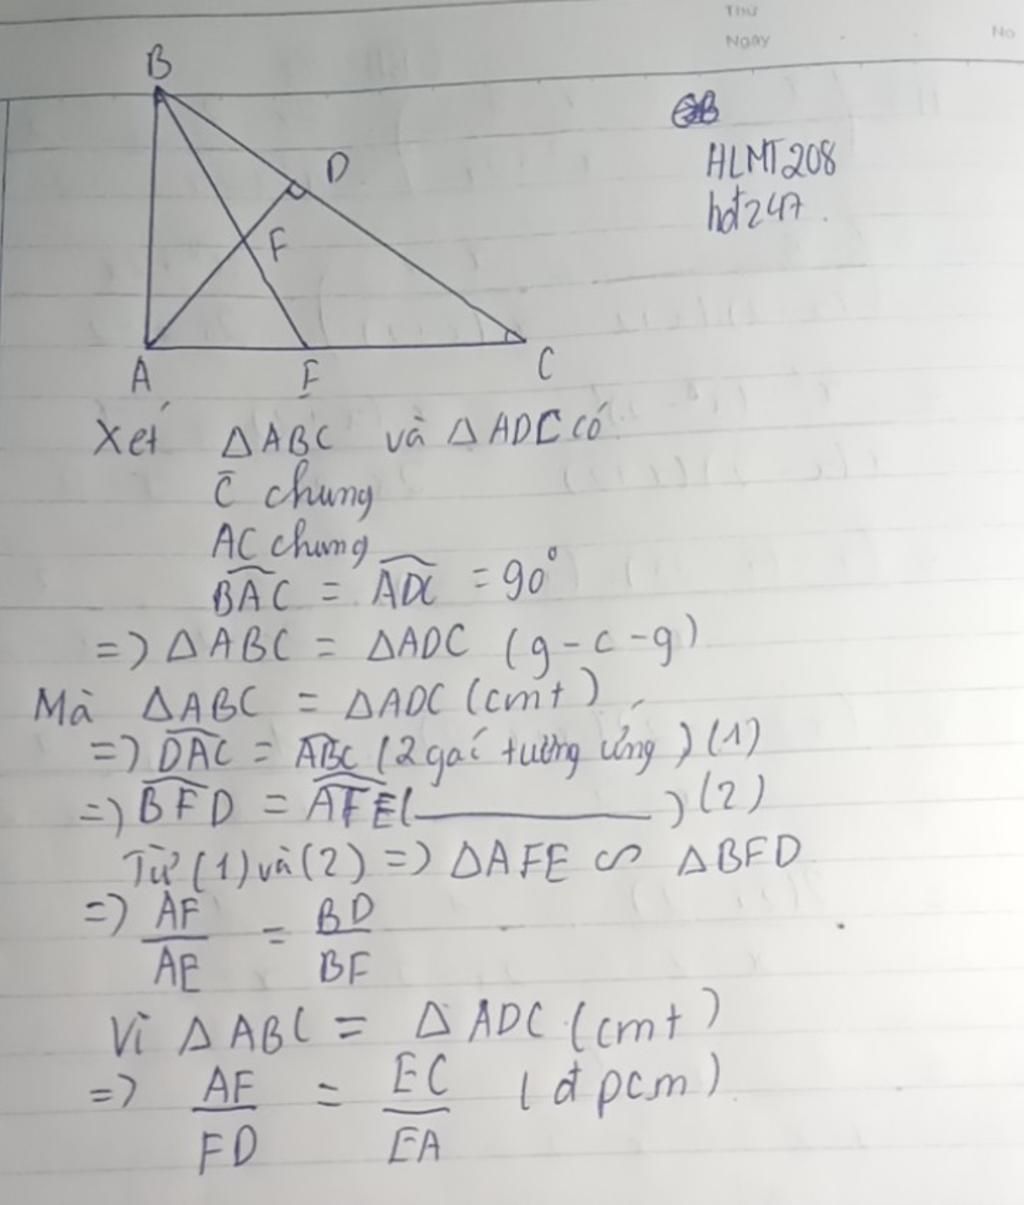 Thứ
Ngày
No
B
D
F
A
E
C
HLMT208
hot247.
Xét ΔABC và ΔADC có
C̄ chung
AC chung
B͡AC = A͡DC = 90°
=> ΔABC = ΔADC (g-c-g)
Mà ΔABC = ΔADC (cmt)
=> D͡AC = A͡BC (2 gaí tường ứng) (1)
=> B͡FD = A͡FE (________) (2)
Từ (1) và (2) => ΔAFE ∽ ΔBFD
=> AF/AE = BD/BF
Vì ΔABC = ΔADC (cmt)
=> AF/FD = EC/EA (đpcm)